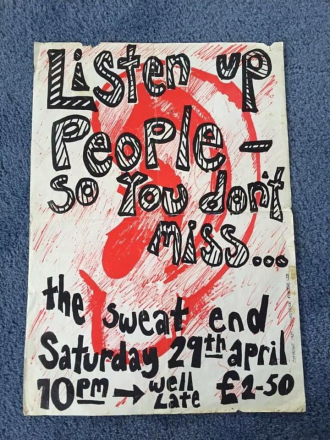 Listen up
People –
so you don't
miss...
the sweat end
Saturday 29th april
10pm → well
late £2-50